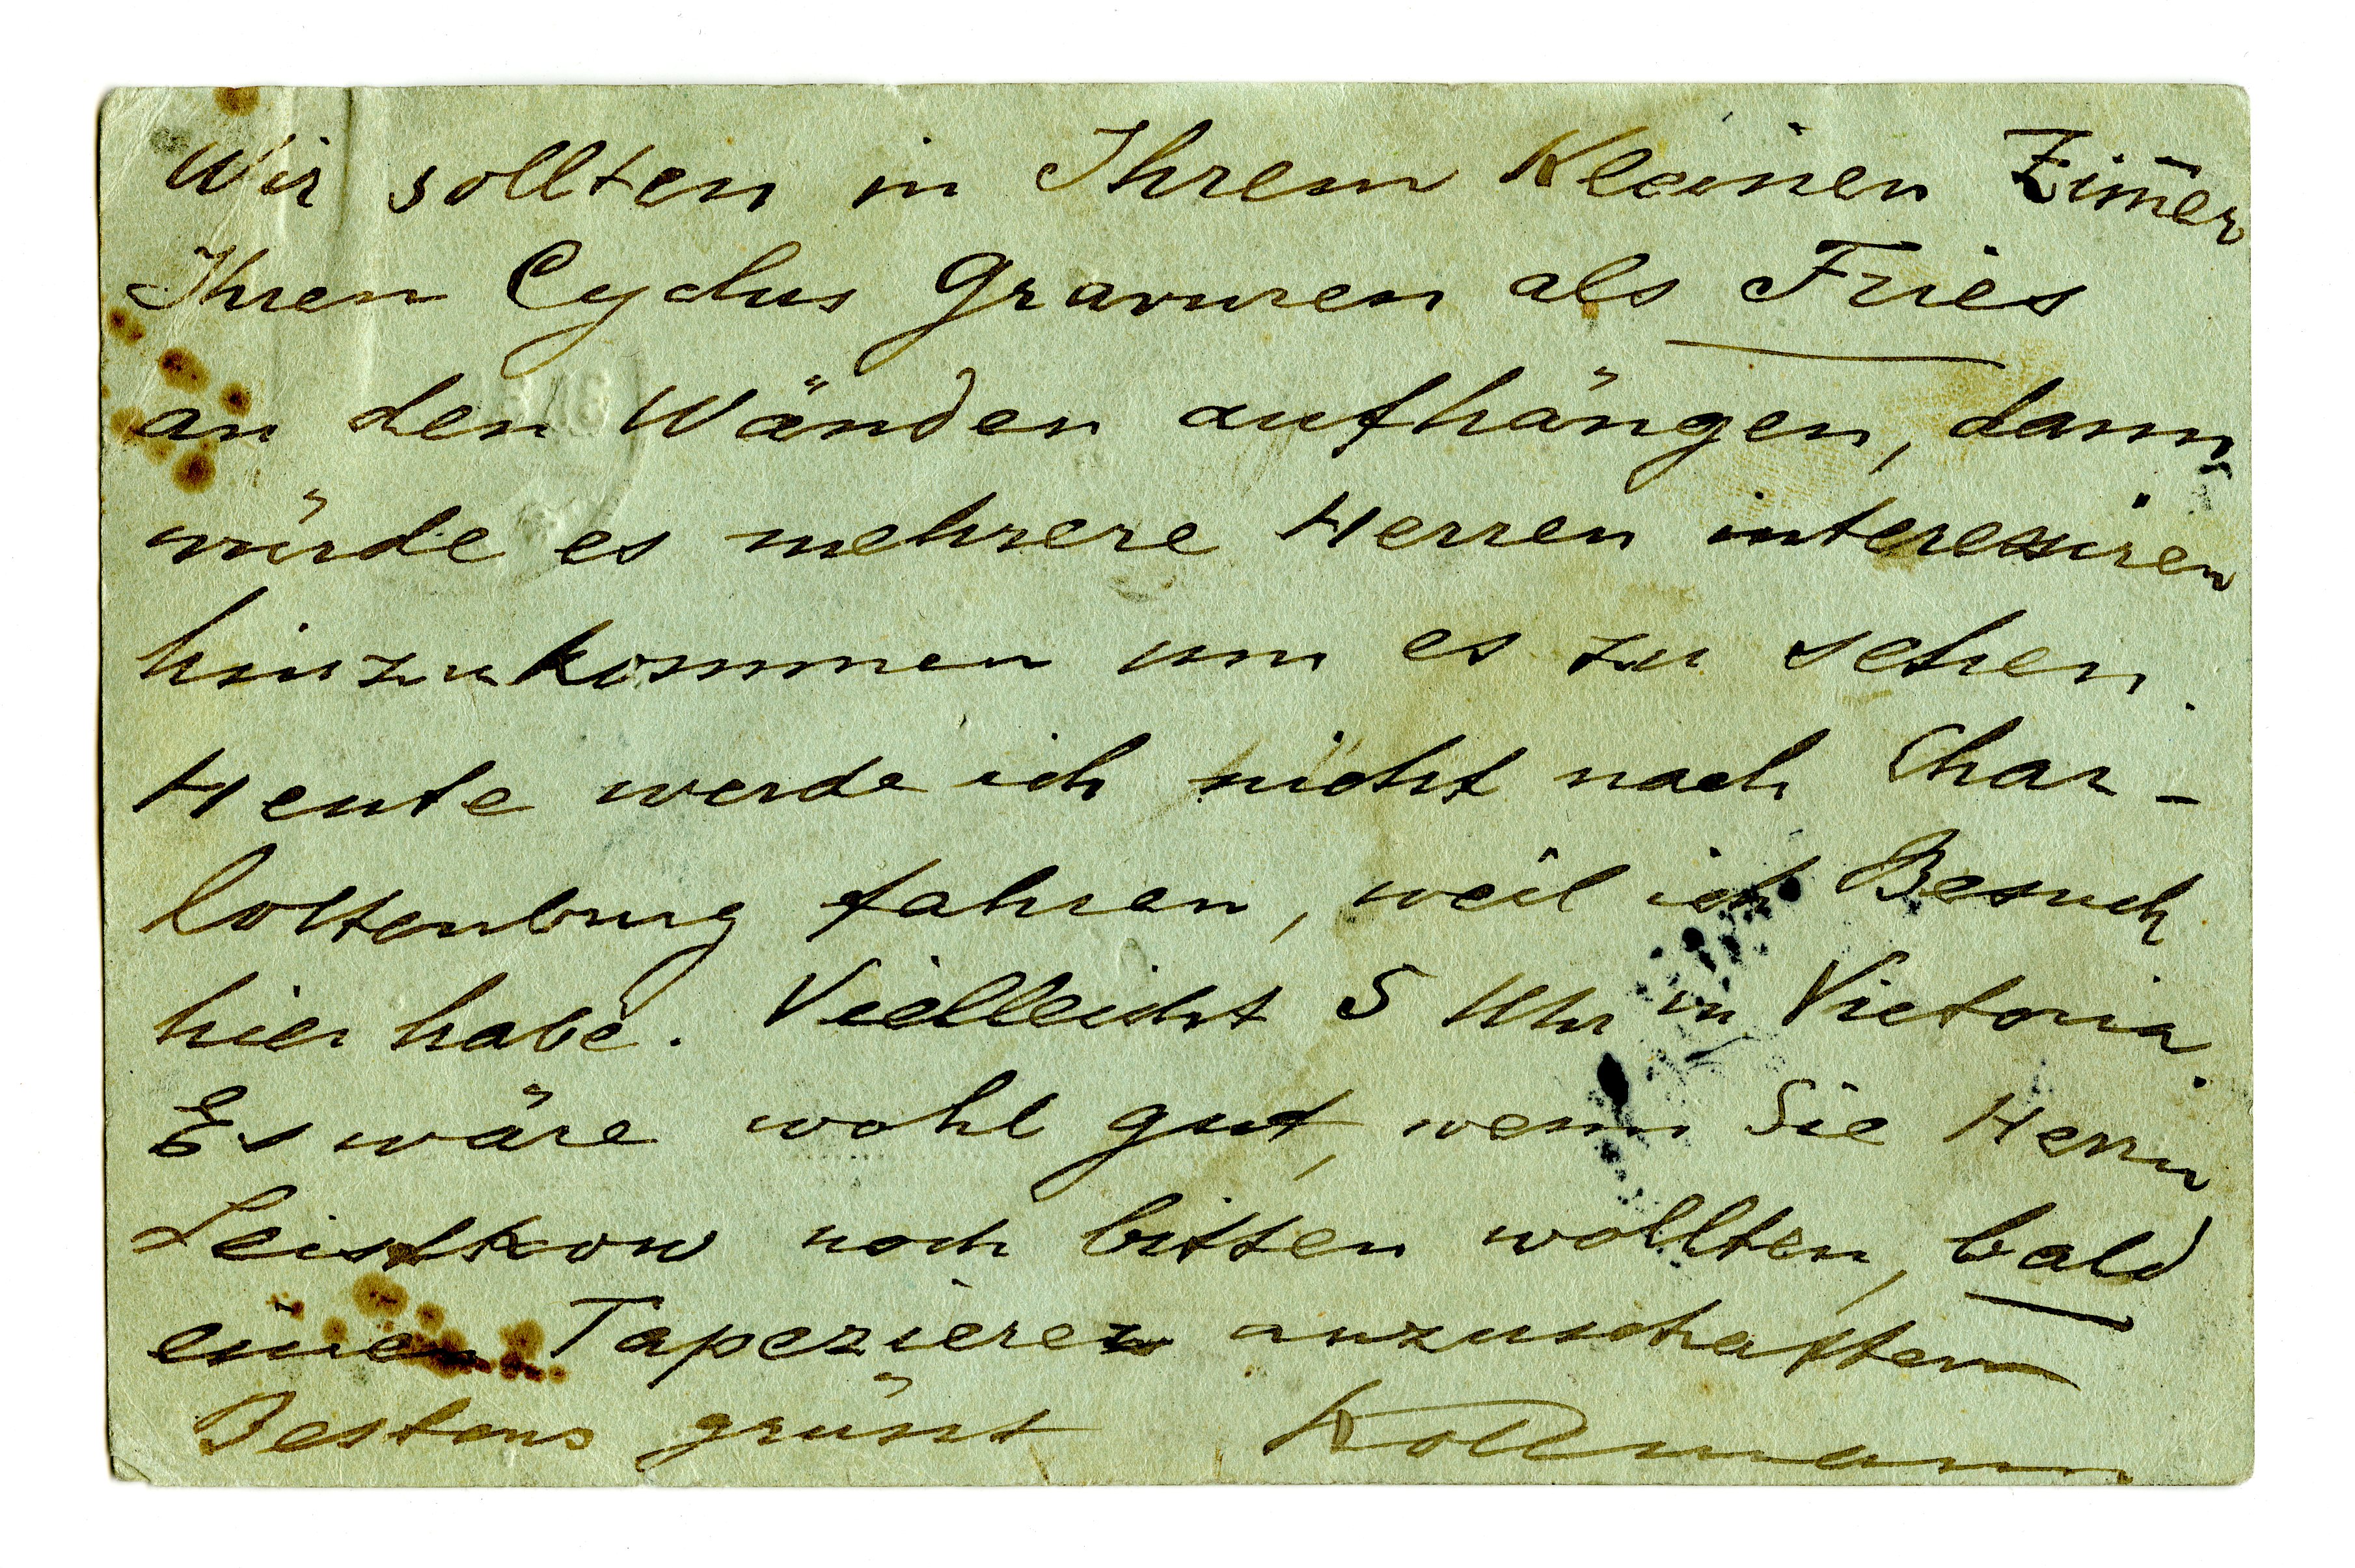 Wir sollten in Ihrem Kleinen Zim̄er
Ihren Cyclus Gravuren als Fries
an den Wänden aufhängen, dann
würde es mehrere Herren interessiren
hinzukommen um es zu sehen.
Heute werde ich nicht nach Char-
lottenburg fahren, weil ich Besuch
hier habe. Vielleicht 5 Uhr in Victoria.
Es wäre wohl gut, wenn Sie Herrn
Leistikow noch bitten wollten, bald
einen Tapezierer anzuschaffen
Bestens grüsst Kollmann